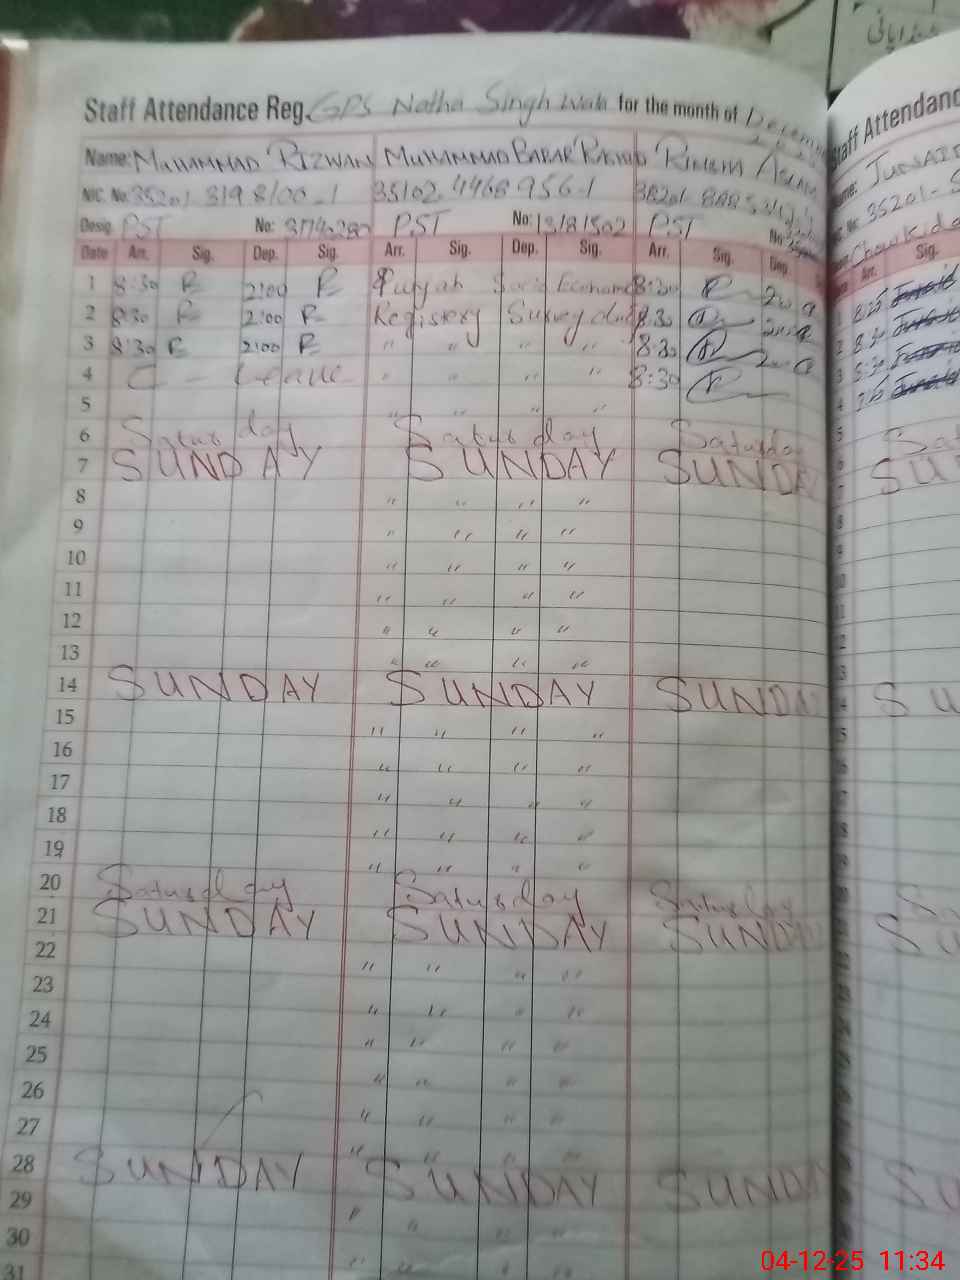 خدا پانی
Staff Attendance Reg. GPS Natha Singh Wala for the month of December
Name: MUHAMMAD RIZWAN MUHAMMAD BABAR RASHID RIMSHA ASLAM
NIC. No. 35201 3198100-1 35102 4468956-1
Desig. PST No: PST No: 13181502 PST No
Date Arr. Sig. Dep. Sig. Arr. Sig. Dep. Sig. Arr. Sig. Dep.
1 8:30 R 2:00 R Punjab Socio Economic 8:30
2 8:30 R 2:00 R Registery Survey duty 8:30
3 8:30 R 2:00 R " " " " 8:30
4 C - Leave " " " " 8:30
5 " " " "
6 Saturday Saturday Saturday
7 SUNDAY SUNDAY SUNDAY
8 " " " "
9 " " " "
10 " " " "
11 " " " "
12 " " " "
13 " " " "
14 SUNDAY SUNDAY SUNDAY
15 " " " "
16 " " " "
17 " " " "
18 " " " "
19 " " " "
20 Saturday Saturday Saturday
21 SUNDAY SUNDAY SUNDAY
22 " " " "
23 " " " "
24 " " " "
25 " " " "
26 " " " "
27 " " " "
28 SUNDAY SUNDAY SUNDAY
29 " " " "
30 " " " "
31
Staff Attendance
Name: JUNAID
35201-5
Chowkidar
Arr. Sig.
8:25 Junaid
8:30 Junaid
8:30 Junaid
7:15 Junaid
04-12-25 11:34